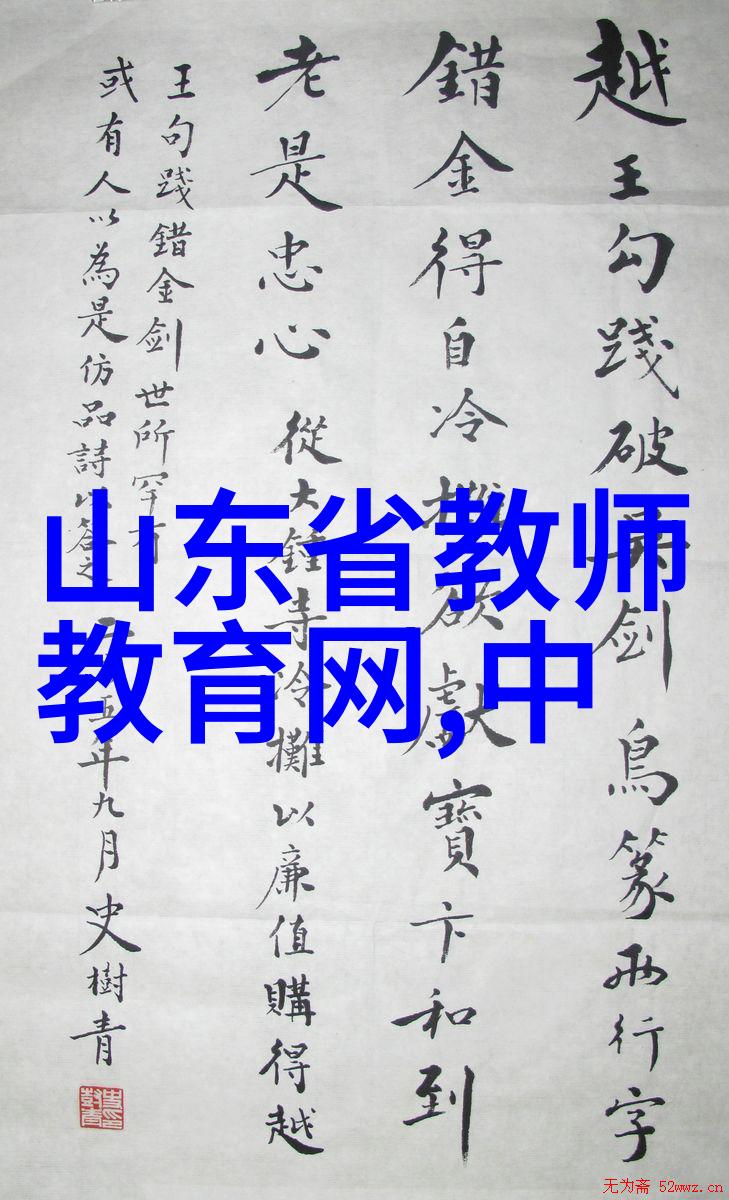 越王勾踐破吳剑鳥篆两行字
錯金得自冷攤欲獻寶卞和到
老是忠心 從大鍾寺冷攤以廉值購得越
王句踐錯金剑世所罕有
或有人以為是仿品詩以答之 五年九月史樹青
山东省教师
教育网,中
无为斋 52wwz.cn